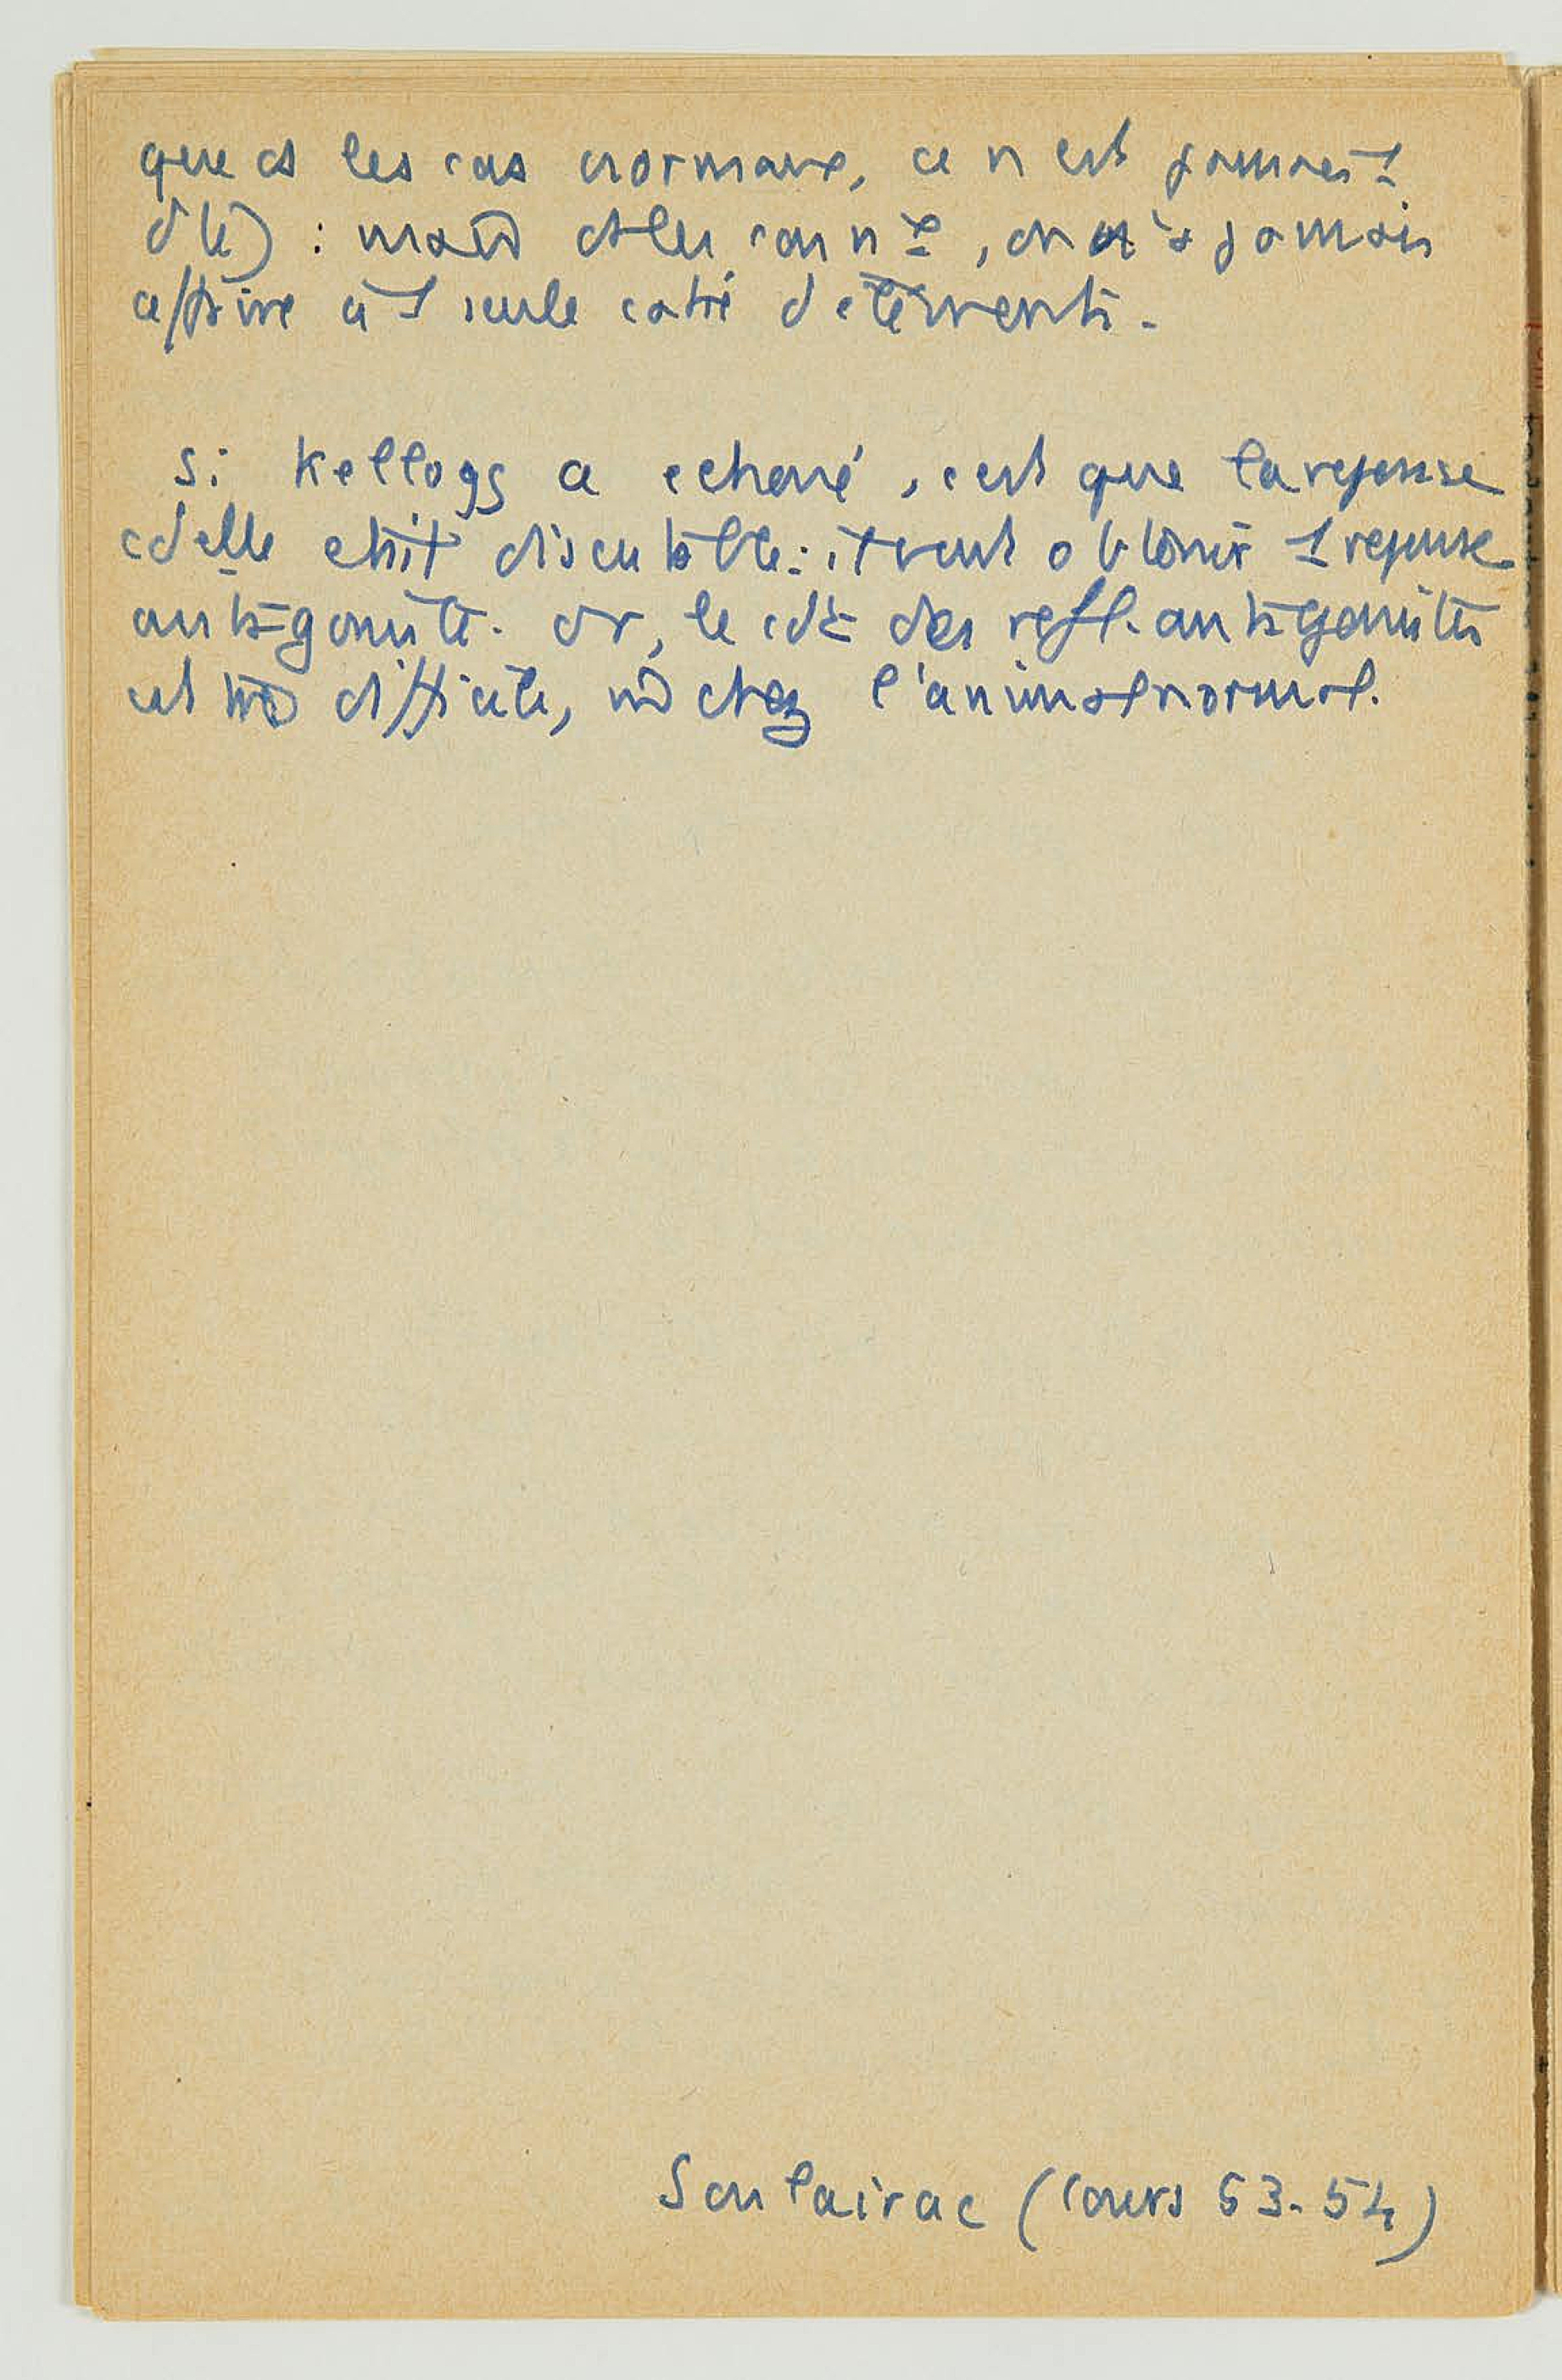 que ds les cas normaux, ce n'est jamais 1
dté) : mais ds les cas n , on n'a jamais
affaire à 1 seule catié d
si Kellogg a échoué, c'est que la réponse
cdelle était discutable : il veut obtenir 1 réponse
antagoniste. or, le cdt des refl. antagonistes
est très difficile, m̂ chez l'animal normal.
Soulairac (cours 53-54)